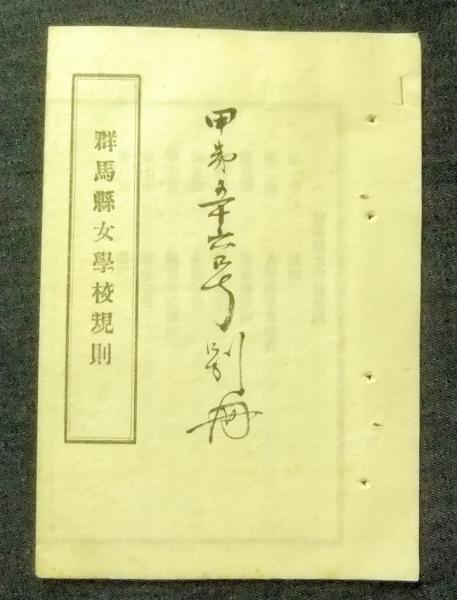 甲第五十六号別冊
群馬縣女學校規則